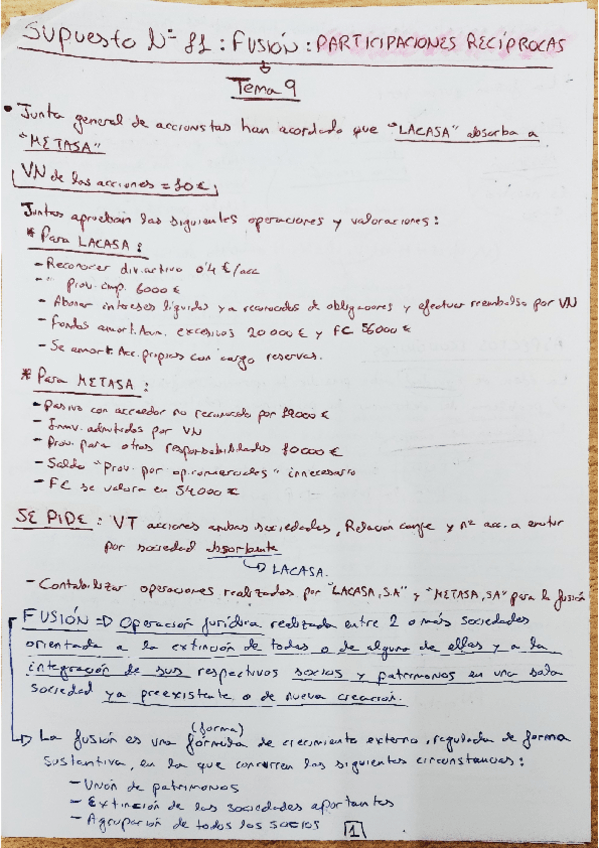 Supuesto Nº 11: FUSIÓN: PARTICIPACIONES RECÍPROCAS
Tema 9
• Junta general de accionistas han acordado que "LACASA" absorba a
"METASA"
VN de las acciones = 10 €
Juntas aprueban las siguientes operaciones y valoraciones:
* Para LACASA:
- Reconocer div. activo 0'4 €/acc
- " prov. imp. 6000 €
- Abonar intereses líquidos ya reconocidos de obligaciones y efectuar reembolso por VN
- Fondos amort. Acum. excesivos 20000 € y FC 56000 €
- Se amort. Acc. propias con cargo reservas.
* Para METASA:
- Pasivo con acreedor no reconocido por 12000 €
- Inmv. admitidos por VN
- Prov. para otras responsabilidades 10000 €
- Saldo "Prov. por op. comerciales" innecesario
- FC se valora en 54000 €
SE PIDE: VT acciones ambas sociedades, Relación canje y nº acc. a emitir
por sociedad absorbente
LACASA.
- Contabilizar operaciones realizadas por "LACASA, S.A" y "METASA, SA" para la fusión
FUSIÓN => Operación jurídica realizada entre 2 o más sociedades
orientada a la extinción de todas o de alguna de ellas y a la
integración de sus respectivos socios y patrimonios en una sola
sociedad ya preexistente o de nueva creación.
(forma)
La fusión es una fórmula de crecimiento externo, regulada de forma
sustantiva, en la que concurren las siguientes circunstancias:
- Unión de patrimonios
- Extinción de las sociedades aportantes
- Agrupación de todos los socios
1